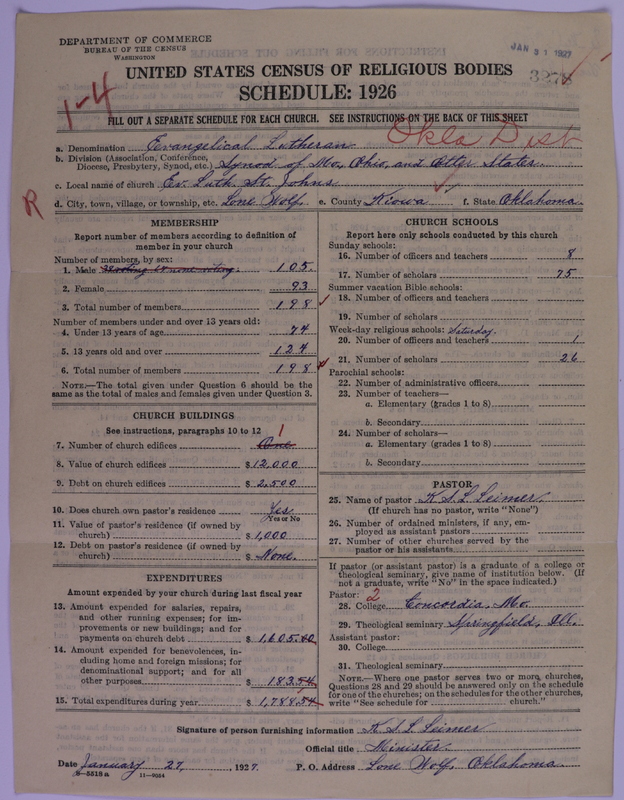 DEPARTMENT OF COMMERCE
BUREAU OF THE CENSUS
WASHINGTON
JAN 31 1927
UNITED STATES CENSUS OF RELIGIOUS BODIES
SCHEDULE: 1926
1-4
FILL OUT A SEPARATE SCHEDULE FOR EACH CHURCH. SEE INSTRUCTIONS ON THE BACK OF THIS SHEET
Okla Dist
a. Denomination Evangelical Lutheran
b. Division (Association, Conference, Diocese, Presbytery, Synod, etc.) Synod of Mo, Ohio, and Other States.
c. Local name of church Ev. Luth. St. Johns
R
d. City, town, village, or township, etc. Lone Wolf. e. County Kiowa f. State Oklahoma.
MEMBERSHIP
Report number of members according to definition of
member in your church
Number of members, by sex:
1. Male 105.
2. Female 93
3. Total number of members 198
Number of members under and over 13 years old:
4. Under 13 years of age 74
5. 13 years old and over 124
6. Total number of members 198
NOTE.—The total given under Question 6 should be
same as the total of males and females given under Question 3.
CHURCH BUILDINGS
See instructions, paragraphs 10 to 12
7. Number of church edifices One 1
8. Value of church edifices $ 12,000
9. Debt on church edifices $ 2,500
10. Does church own pastor's residence Yes
Yes or No
11. Value of pastor's residence (if owned by
church) $ 1,000
12. Debt on pastor's residence (if owned by
church) $ None.
EXPENDITURES
Amount expended by your church during last fiscal year
13. Amount expended for salaries, repairs,
and other running expenses; for im-
provements or new buildings; and for
payments on church debt $ 1,605.40
14. Amount expended for benevolences, in-
cluding home and foreign missions; for
denominational support; and for all
other purposes $ 183.54
15. Total expenditures during year $ 1,788.54
CHURCH SCHOOLS
Report here only schools conducted by this church
Sunday schools:
16. Number of officers and teachers 8
17. Number of scholars 75
Summer vacation Bible schools:
18. Number of officers and teachers
19. Number of scholars
Week-day religious schools: Saturday.
20. Number of officers and teachers 1
21. Number of scholars 26
Parochial schools:
22. Number of administrative officers
23. Number of teachers—
a. Elementary (grades 1 to 8)
b. Secondary
24. Number of scholars—
a. Elementary (grades 1 to 8)
b. Secondary
PASTOR
25. Name of pastor K S L Leimer.
(If church has no pastor, write "None")
26. Number of ordained ministers, if any, em-
ployed as assistant pastors
27. Number of other churches served by the
pastor or his assistants
If pastor (or assistant pastor) is a graduate of a college or
theological seminary, give name of institution below. (If
not a graduate, write "No" in the space indicated.)
Pastor: 2
28. College Concordia, Mo.
29. Theological seminary Springfield, Ill.
Assistant pastor:
30. College
31. Theological seminary
NOTE.—Where one pastor serves two or more churches,
Questions 28 and 29 should be answered only on the schedule
for one of the churches; on the schedules for the other churches,
write "See schedule for church."
Signature of person furnishing information K S L Leimer
Official title Minister
Date January 27, 1927. P. O. Address Lone Wolf, Oklahoma.
8-5518a 11-9264